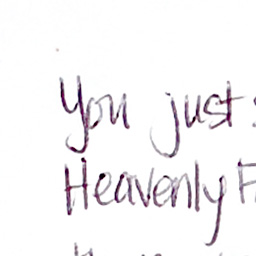 You just
Heavenly F